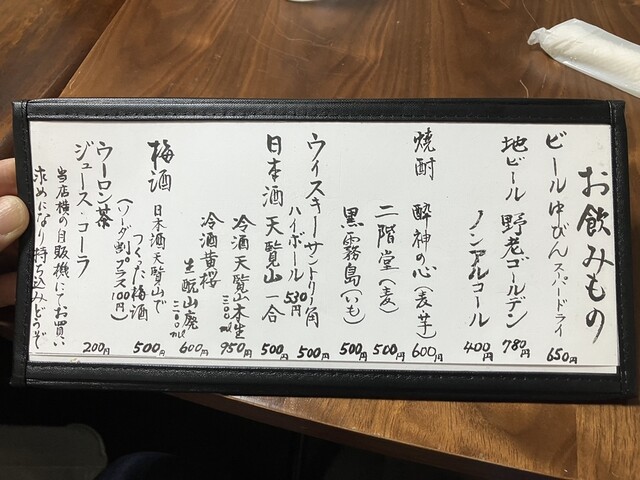 お飲みもの
ビール中びん スーパードライ 650円
地ビール 野老ゴールデン 780円
ノンアルコール 400円
焼酎 酔神の心(麦・芋) 600円
二階堂(麦) 500円
黒霧島(いも) 500円
ウィスキーサントリー角 500円
ハイボール 530円
日本酒 天覧山 一合 500円
冷酒 天覧山本生 三〇〇ml 950円
冷酒 黄桜 生酛山廃 三〇〇ml 600円
梅酒 日本酒天覧山で つくった梅酒 500円
(ソーダ割プラス100円)
ウーロン茶
ジュース・コーラ 200円
当店横の自販機にてお買い
求めになり持ち込みどうぞ